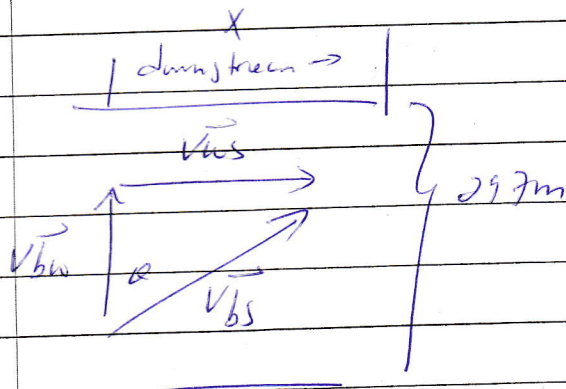 x
downstream →
Vws
297m
Vbw
θ
Vbs